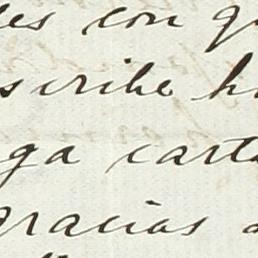 es con qu
scribe h
ga carta
gracias